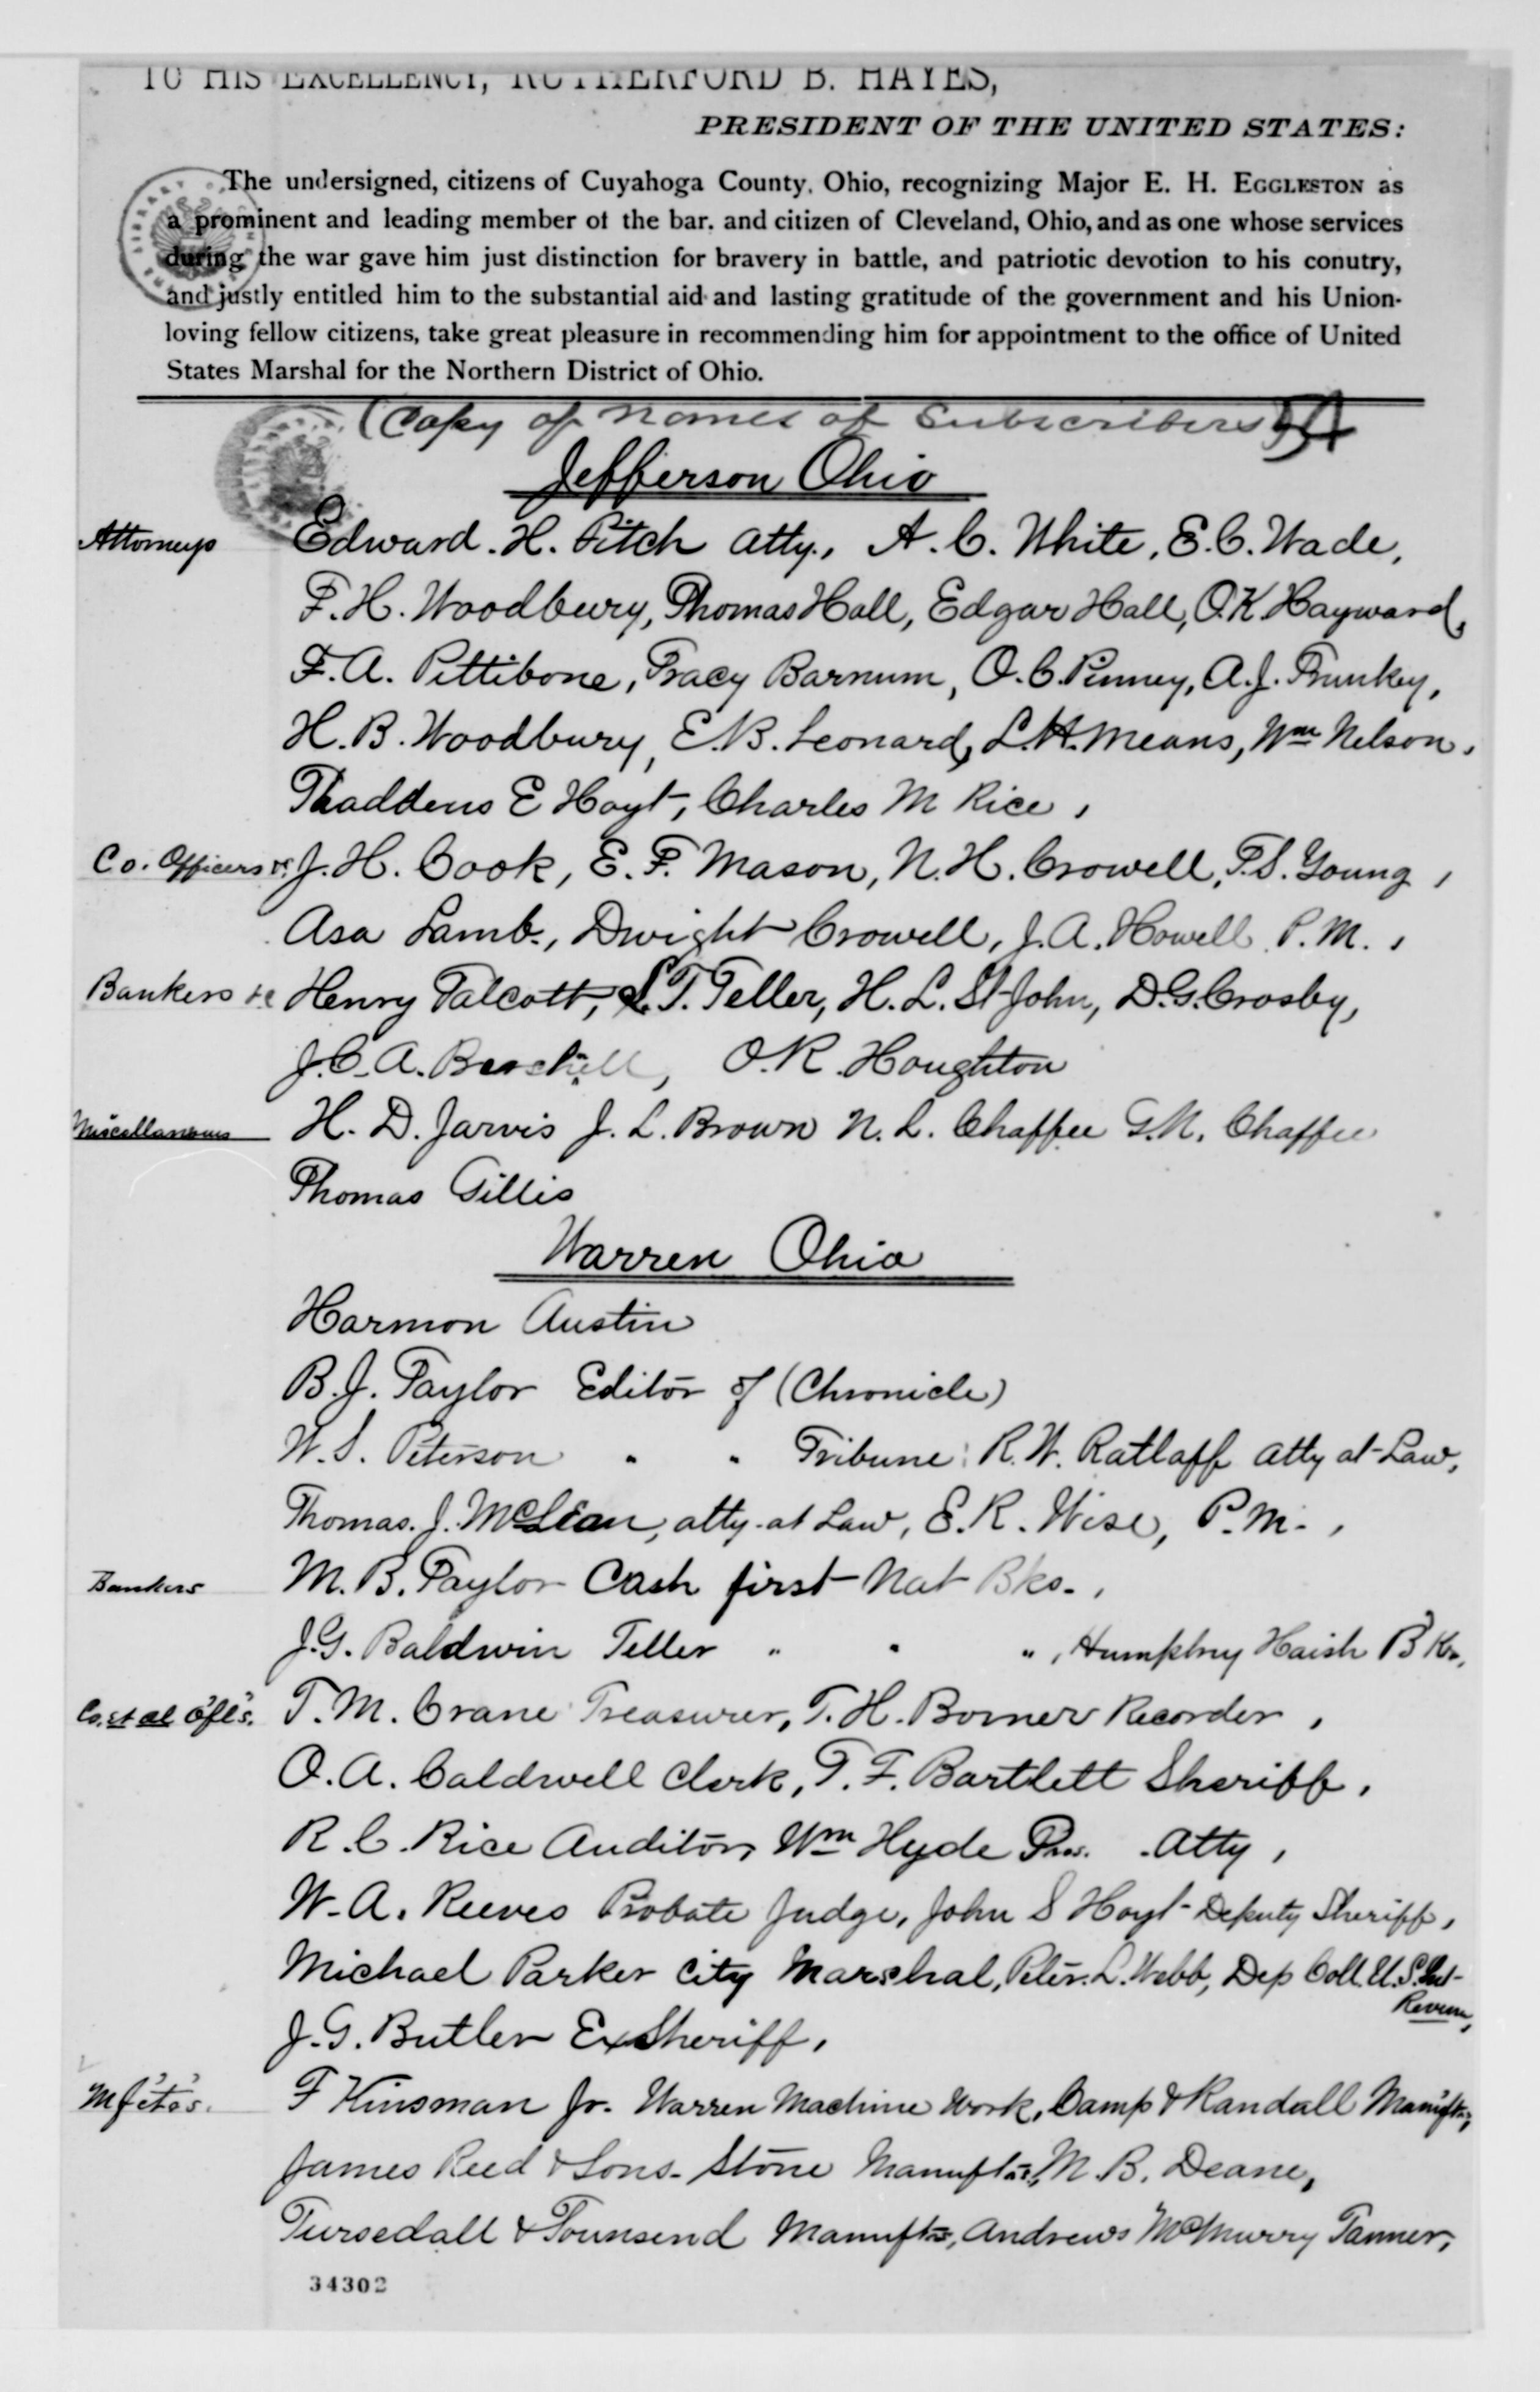 TO HIS EXCELLENCY, RUTHERFORD B. HAYES,
PRESIDENT OF THE UNITED STATES:
The undersigned, citizens of Cuyahoga County, Ohio, recognizing Major E. H. EGGLESTON as
a prominent and leading member of the bar, and citizen of Cleveland, Ohio, and as one whose services
during the war gave him just distinction for bravery in battle, and patriotic devotion to his conutry,
and justly entitled him to the substantial aid and lasting gratitude of the government and his Union-
loving fellow citizens, take great pleasure in recommending him for appointment to the office of United
States Marshal for the Northern District of Ohio.
(Copy of names of Subscribers)
Jefferson Ohio
Attorneys Edward. H. Fitch atty., A. C. White, E. C. Wade,
F. H. Woodbury, Thomas Hall, Edgar Hall, O. K. Hayward,
F. A. Pittibone, Tracy Barnum, O. C. Pinney, A. J. Trunkey,
H. B. Woodbury, E. B. Leonard, L. H. Means, Wm Nelson,
Thaddeus E Hoyt, Charles M Rice,
Co. Officers &c. J. H. Cook, E. F. Mason, N. H. Crowell, T. S. Young,
Asa Lamb., Dwight Crowell, J. A. Howell P. M.,
Bankers &c Henry Talcott, S. T. Teller, H. L. St John, D. G. Crosby,
J. C. A. O. R. Houghton
Miscellaneous H. D. Jarvis J. L. Brown N. L. Chaffee G. N. Chaffee
Thomas Gillis
Warren Ohio
Harmon Austin
B. J. Taylor Editor of (Chronicle)
W. S. Peterson " " Tribune: R. W. Ratlaff atty at Law,
Thomas. J. McLean, atty. at Law, E. R. Wise, P. M.,
Bankers M. B. Taylor Cash first Nat Bks.,
J. G. Baldwin Teller " " ", Humphry Haish B Kr,
Co. et al ofl's. T. M. Crane Treasurer, T. H. Borner Recorder,
O. A. Caldwell Clerk, T. F. Bartlett Sheriff,
R. C. Rice Auditor, Wm Hyde Pros. Atty,
W. A. Reeves Probate Judge, John S Hoyt Deputy Sheriff,
Michael Parker City Marshal, Peter. L. Webb, Dep Coll. U. S. Int
Revenue,
J. G. Butler Ex Sheriff,
Mfctrs. F Kinsman Jr. Warren Machine Work, Camp & Randall Manuftrs,
James Reed & Sons. Stove Manuftrs, M. B. Deane,
& Townsend Manuftrs, Andrews McMurry Tanner,
34302